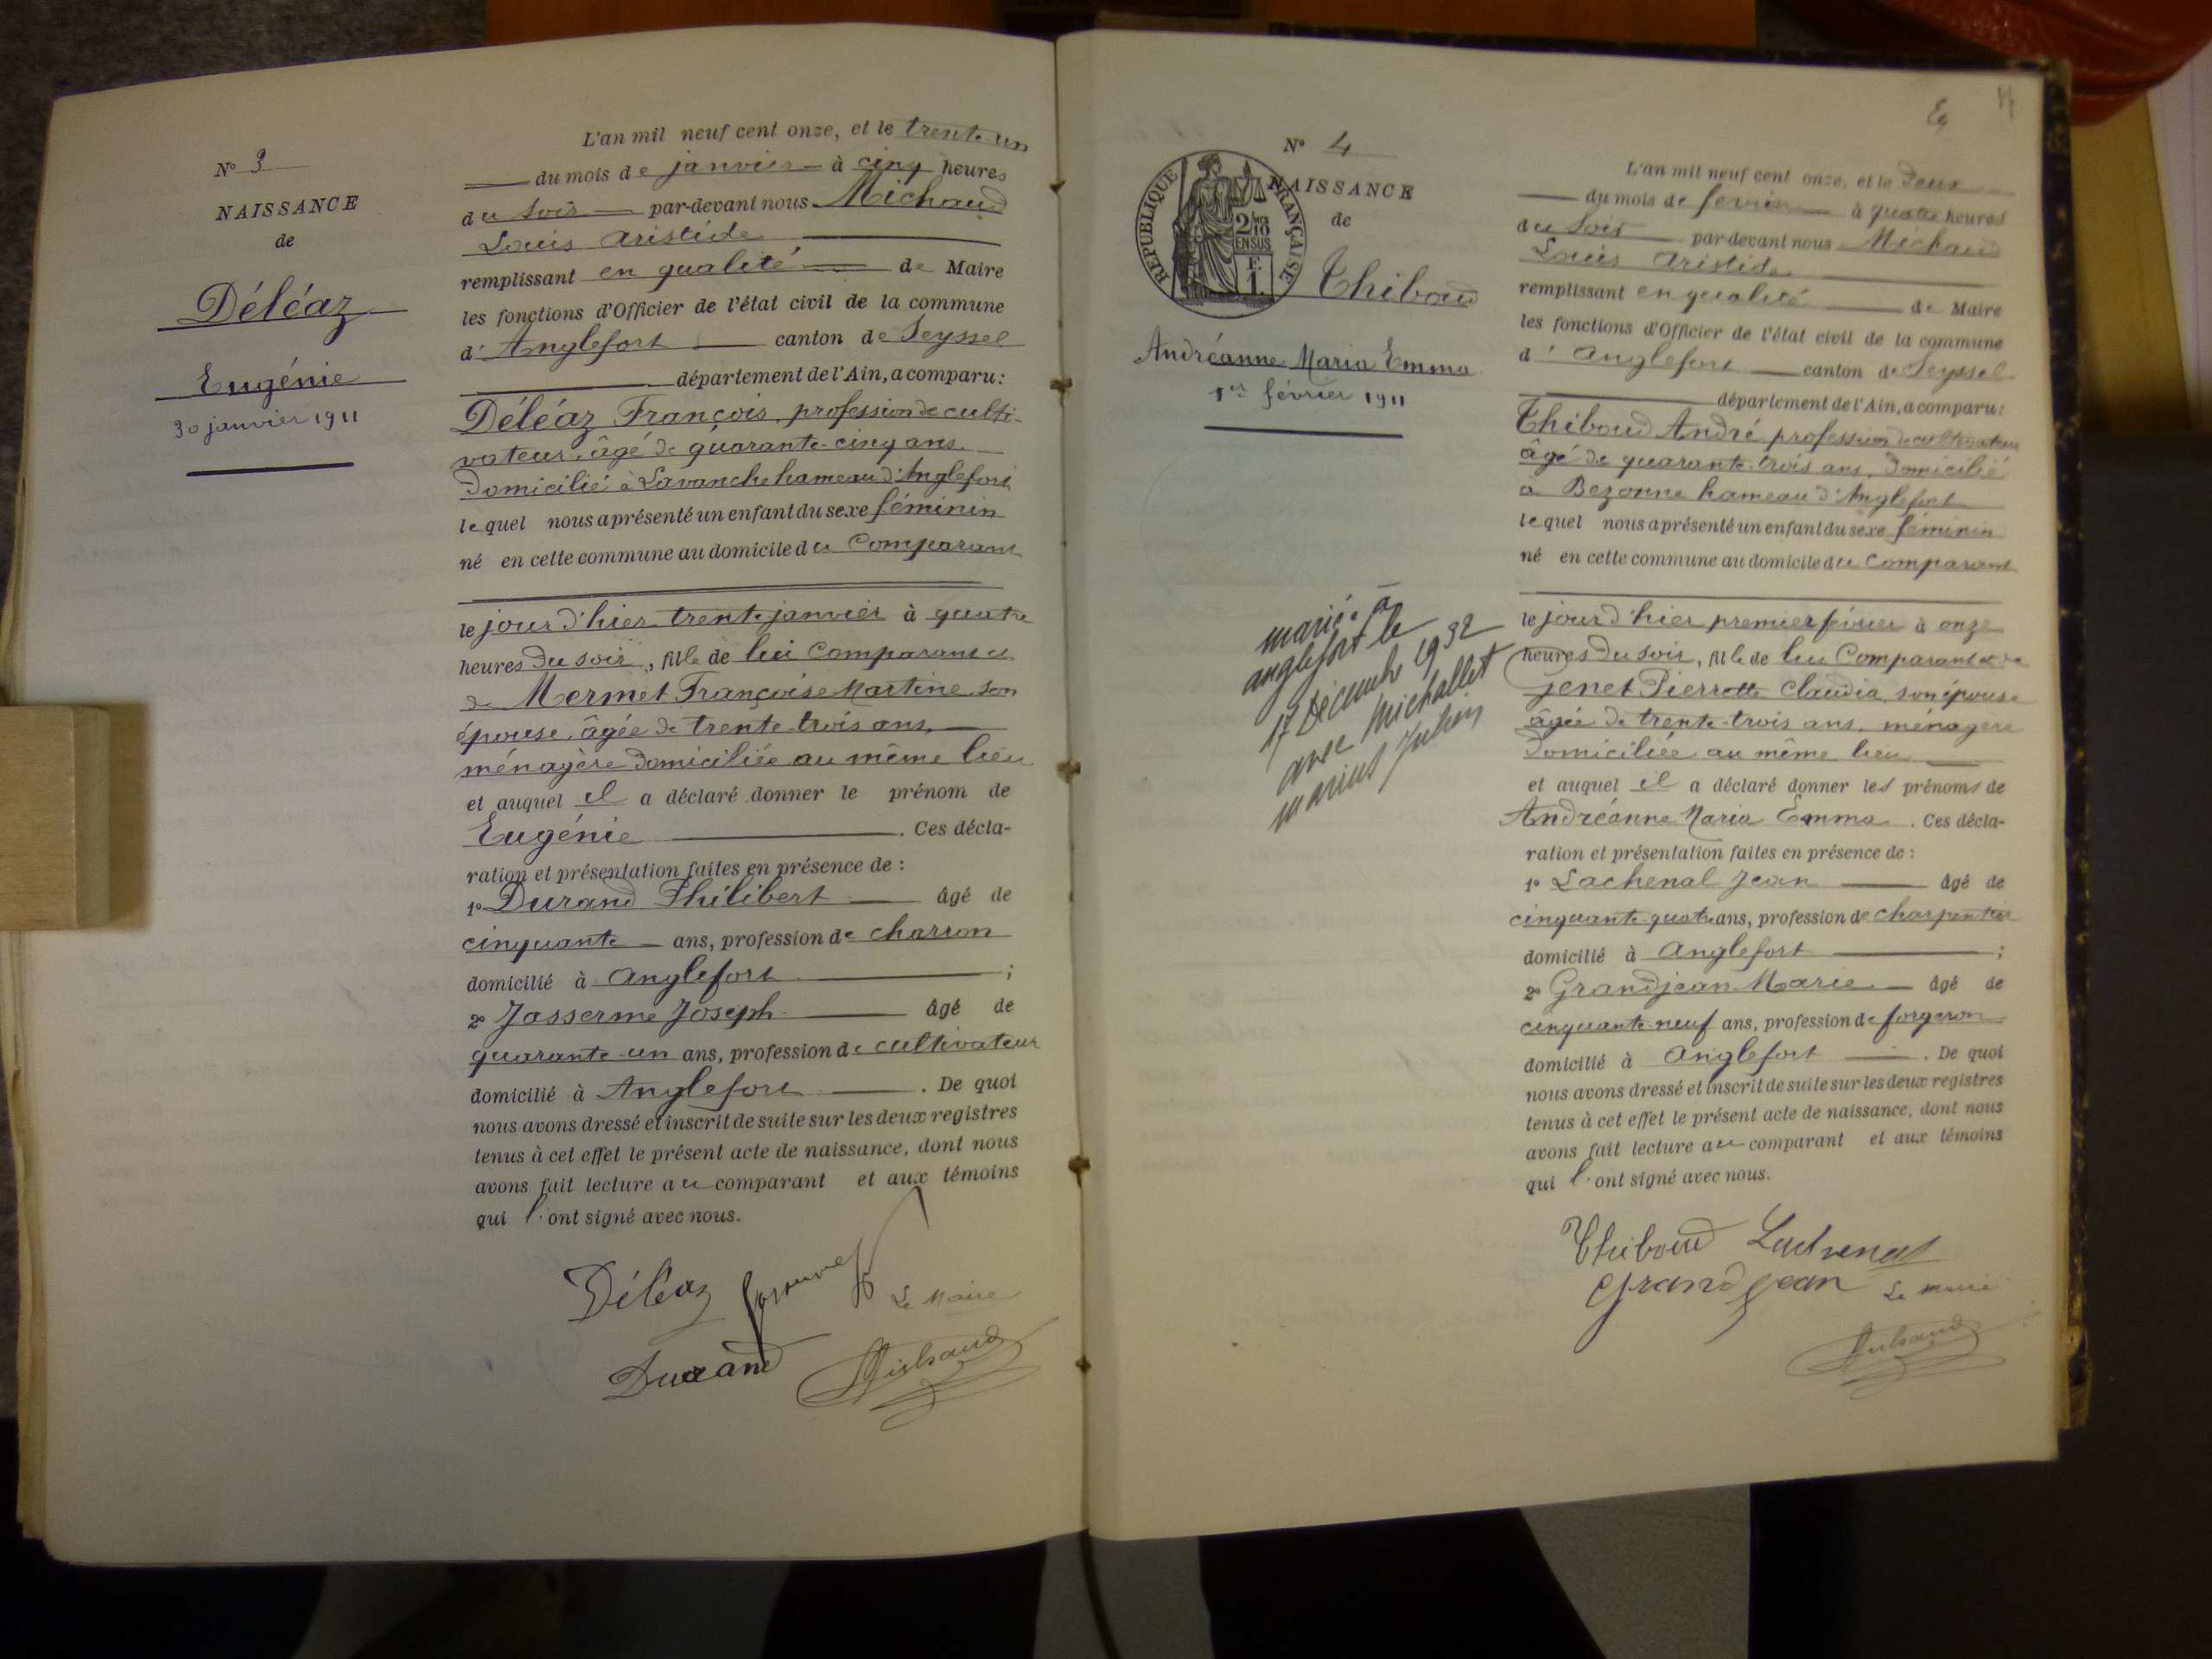 N° 3
NAISSANCE
de
Déléaz
Eugénie
30 janvier 1911
L'an mil neuf cent onze, et le trente-un
du mois de janvier à cinq heures
du soir par-devant nous Michaud
Louis Aristide
remplissant en qualité de Maire
les fonctions d'Officier de l'état civil de la commune
d'Anglefort canton de Seyssel
département de l'Ain, a comparu:
Déléaz François, profession de culti-
vateur, âgé de quarante-cinq ans,
domicilié à Lavanche hameau d'Anglefort
lequel nous a présenté un enfant du sexe féminin
né en cette commune au domicile du Comparant
le jour d'hier trente janvier à quatre
heures du soir, fille de lui Comparant et
de Mermet Françoise Martine son
épouse, âgée de trente-trois ans,
ménagère domiciliée au même lieu
et auquel il a déclaré donner le prénom de
Eugénie. Ces décla-
ration et présentation faites en présence de :
1° Durand Philibert âgé de
cinquante ans, profession de charron
domicilié à Anglefort ;
2° Jasserme Joseph âgé de
quarante-un ans, profession de cultivateur
domicilié à Anglefort. De quoi
nous avons dressé et inscrit de suite sur les deux registres
tenus à cet effet le présent acte de naissance, dont nous
avons fait lecture au comparant et aux témoins
qui l'ont signé avec nous.
Déléaz Jasserme
Le Maire
Durand Michaud
N° 4
NAISSANCE
de
RÉPUBLIQUE FRANÇAISE
2/10
EN SUS
F.
1.
Thiboud
Andréanne Maria Emma
1er février 1911
mariée à
anglefort le
17 Décembre 1932
avec Michallet
marius Julien
L'an mil neuf cent onze, et le deux
du mois de fevrier à quatre heures
du soir par-devant nous Michaud
Louis Aristide
remplissant en qualité de Maire
les fonctions d'Officier de l'état civil de la commune
d'Anglefort canton de Seyssel
département de l'Ain, a comparu:
Thiboud André profession de cultivateur
âgé de quarante-trois ans, domicilié
a Bezonne hameau d'Anglefort
lequel nous a présenté un enfant du sexe féminin
né en cette commune au domicile du Comparant
le jour d'hier premier février à onze
heures du soir, fille de lui Comparant et de
Jenet Pierrette Claudia, son épouse
âgée de trente-trois ans, ménagère
domiciliée au même lieu
et auquel il a déclaré donner les prénoms de
Andréanne Maria Emma. Ces décla-
ration et présentation faites en présence de :
1° Lachenal Jean âgé de
cinquante-quatre ans, profession de charpentier
domicilié à Anglefort ;
2° Grandjean Marie âgé de
cinquante-neuf ans, profession de forgeron
domicilié à Anglefort. De quoi
nous avons dressé et inscrit de suite sur les deux registres
tenus à cet effet le présent acte de naissance, dont nous
avons fait lecture au comparant et aux témoins
qui l'ont signé avec nous.
Thiboud Lachenal
Grandjean Le maire
Michaud